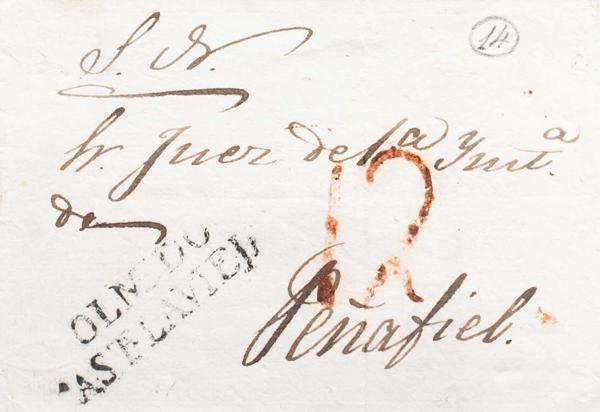 S. N.
14
Sr. Juez de 1ª Ynstª
de
12
Peñafiel.
OLMEDO
CAST.LAVIEJ